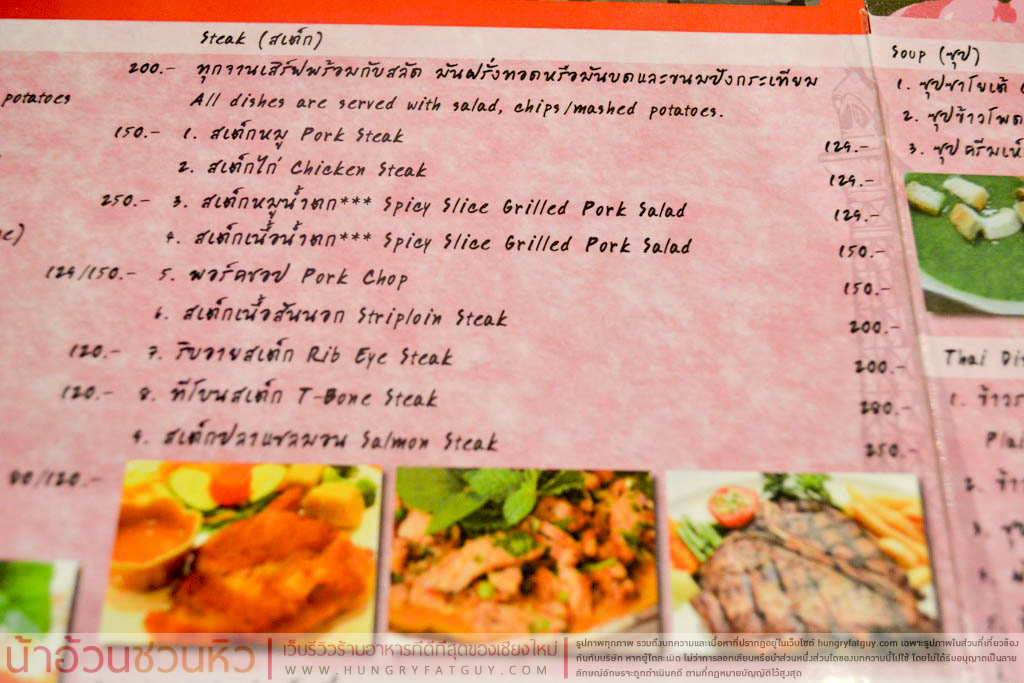 Steak (สเต็ก)
200.- ทุกจานเสิร์ฟพร้อมกับสลัด มันฝรั่งทอดหรือมันบดและขนมปังกระเทียม
potatoes All dishes are served with salad, chips/mashed potatoes.
150.- 1. สเต็กหมู Pork Steak 129.-
2. สเต็กไก่ Chicken Steak 129.-
250.- 3. สเต็กหมูน้ำตก*** Spicy Slice Grilled Pork Salad 129.-
4. สเต็กเนื้อน้ำตก*** Spicy Slice Grilled Pork Salad 150.-
129/150.- 5. พอร์คชอป Pork Chop 150.-
6. สเต็กเนื้อสันนอก Striploin Steak 200.-
120.- 7. ริบอายสเต็ก Rib Eye Steak 200.-
120.- 8. ทีโบนสเต็ก T-Bone Steak 280.-
9. สเต็กปลาแซลมอน Salmon Steak 250.-
90/120.-
Soup (ซุป)
1. ซุปซาโยเต้
2. ซุปข้าวโพด
3. ซุปครีมเห็
Thai Di
1. ข้าว
Pla
2. ข้า
น้าอ้วนชวนหิว
เว็บรีวิวร้านอาหารที่ดีที่สุดของเชียงใหม่
WWW.HUNGRYFATGUY.COM
รูปภาพทุกภาพ รวมถึงบทความและเนื้อหาที่ปรากฏอยู่ในเว็บไซต์ hungryfatguy.com เฉพาะรูปภาพในส่วนที่เกี่ยวข้อง
กันกับบริษัท หากผู้ใดละเมิด ไม่ว่าการลอกเลียนหรือนำส่วนหนึ่งส่วนใดของบทความนี้ไปใช้ โดยไม่ได้รับอนุญาตเป็นลาย
ลักษณ์อักษรจะถูกดำเนินคดี ตามที่กฎหมายบัญญัติไว้สูงสุด